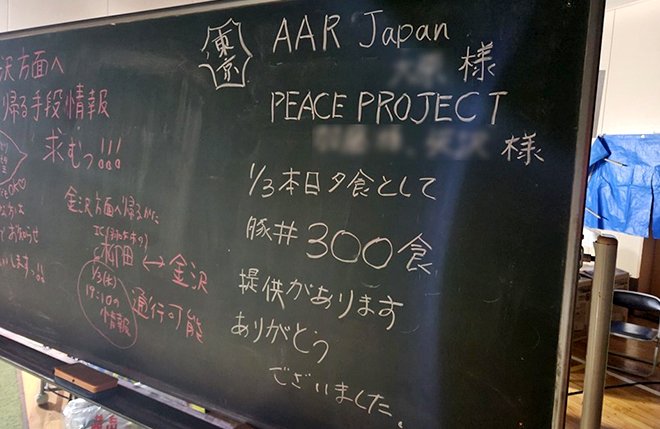 沢方面へ
帰る手段情報
求むっ!!!
金沢方面へ帰るかた
柳田 ↔ 金沢
1/3(水)
19:10の
情報
通行可能
東京
AAR Japan
様
PEACE PROJECT
様
1/3本日夕食として
豚丼 300食
提供があります
ありがとう
ございました。